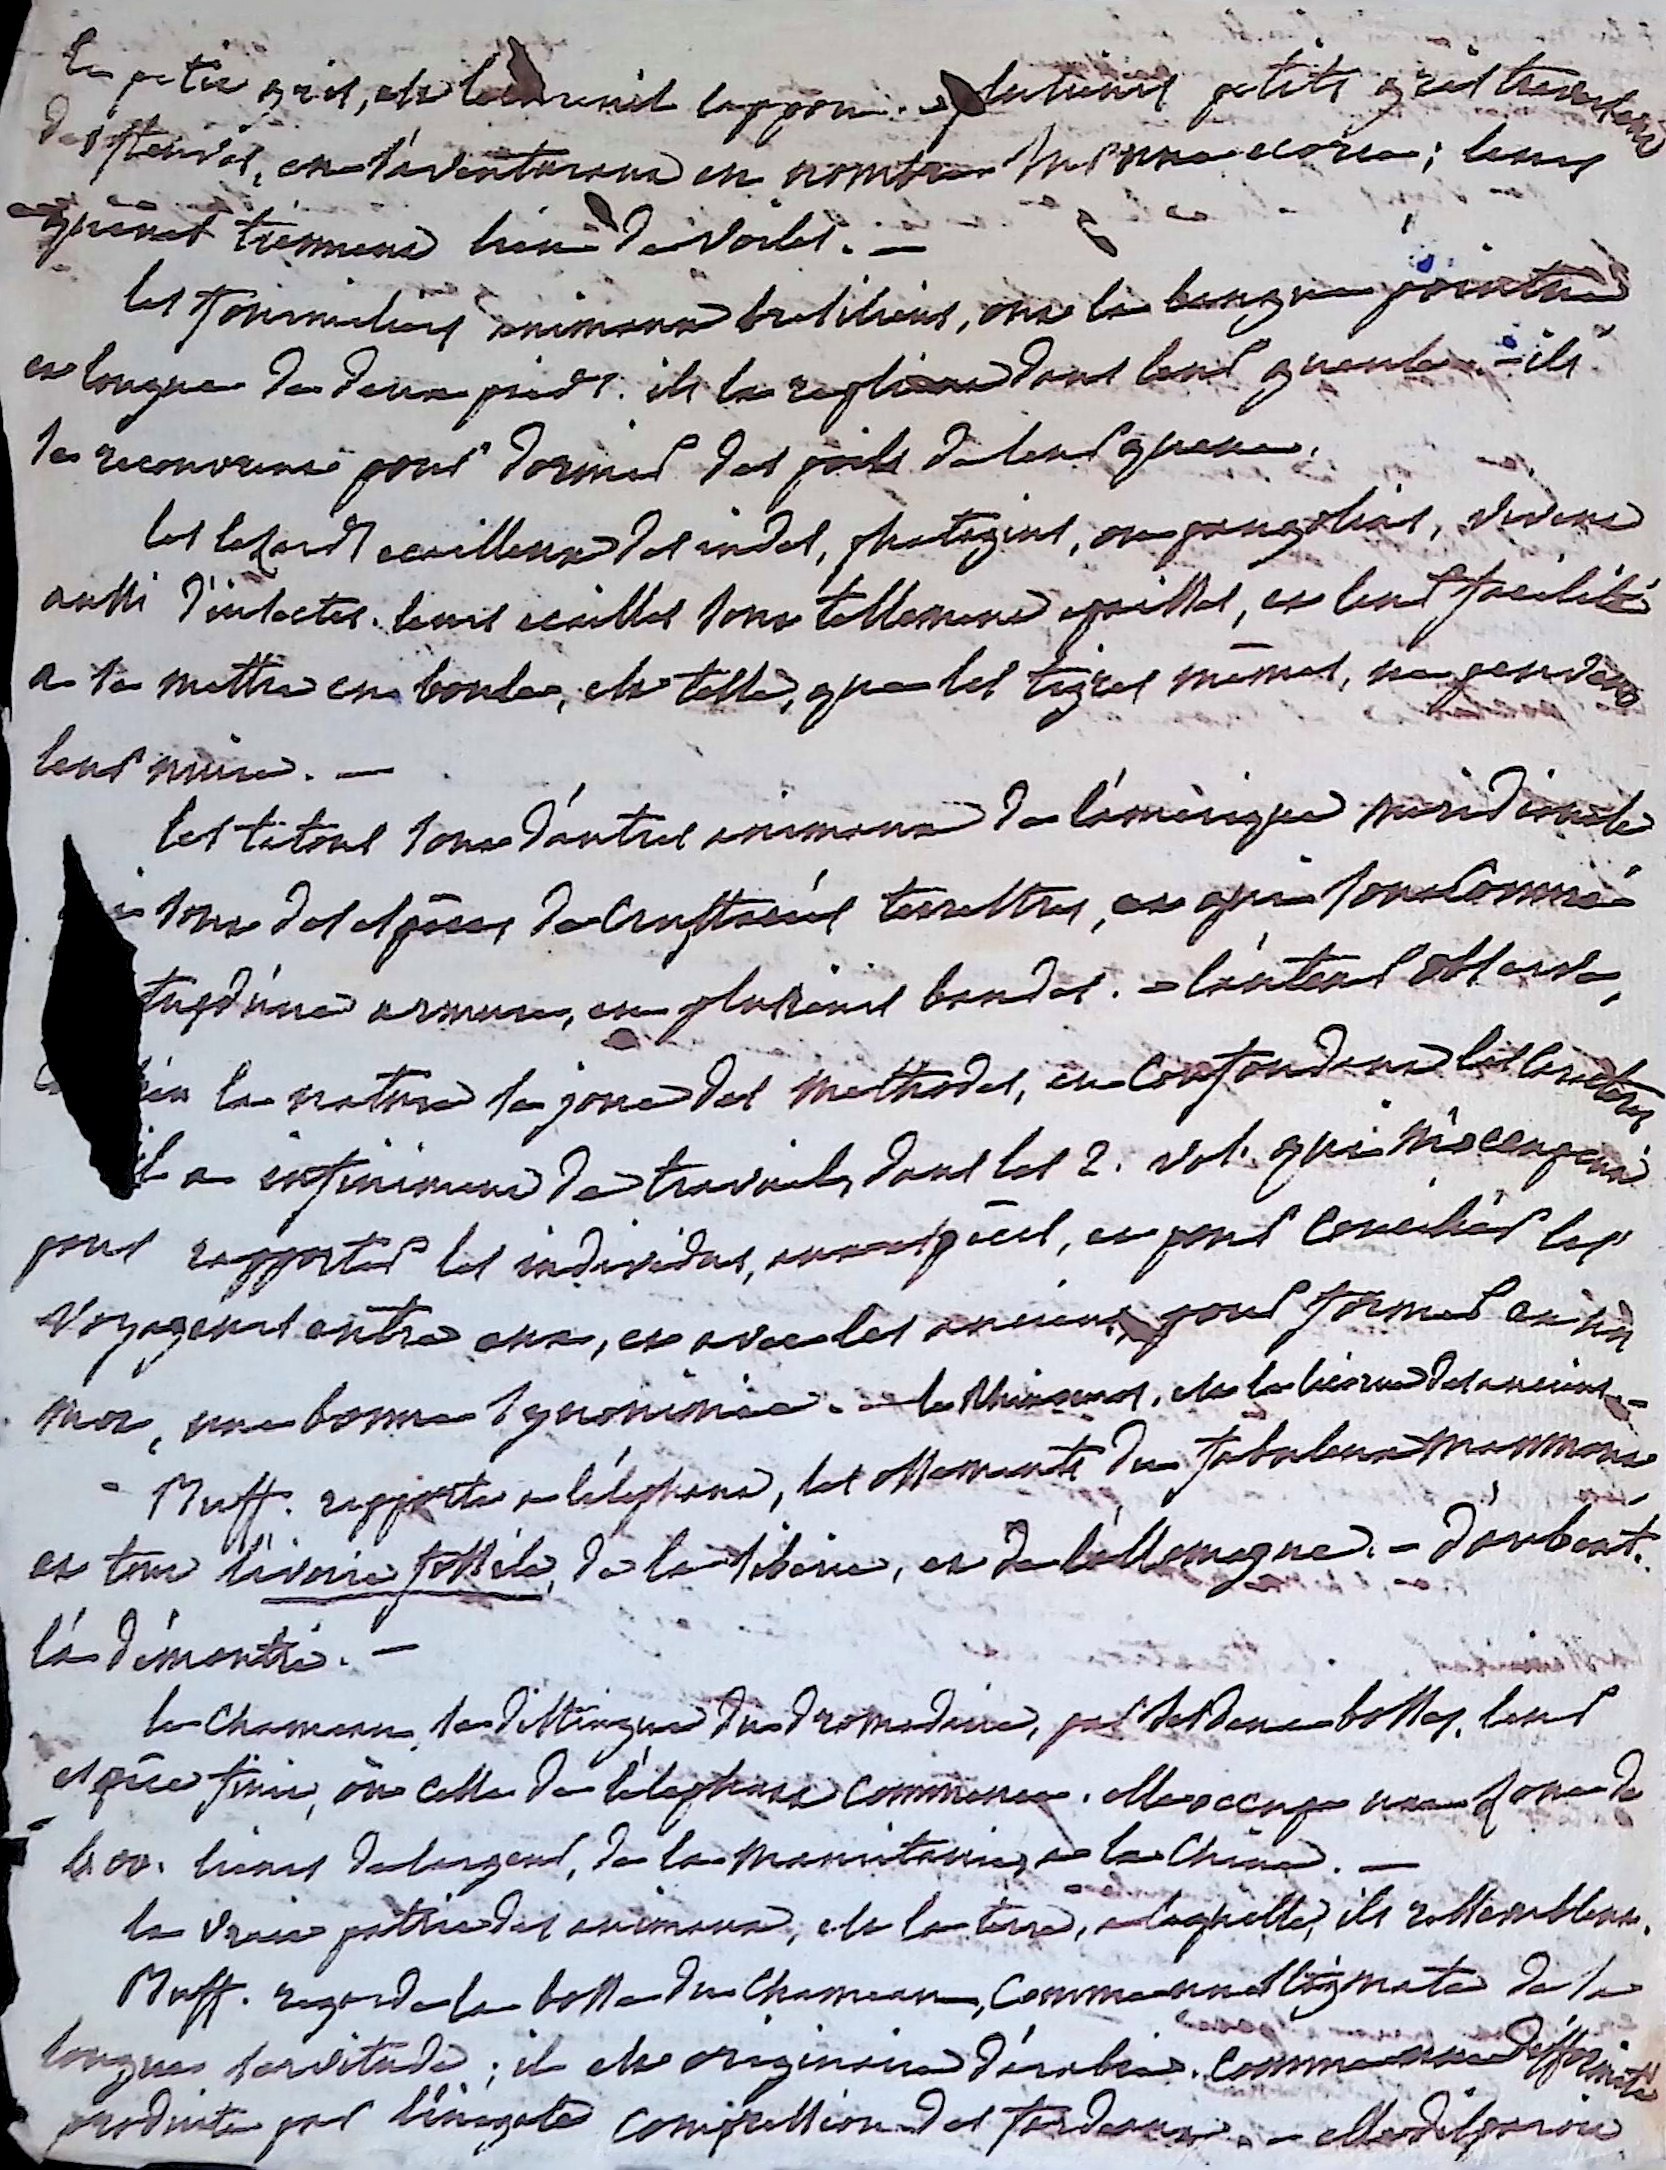 le petit gris, est l'ecureuil lappon. — plusieurs petits gris traversent
des fleuves, en s'aventurant en nombre sur une ecorce ; leurs
queues tiennent lieu de voiles. —
les fourmiliers animaux bresiliens, ont la langue pointue
et longue de deux pieds. ils la replient dans leur gueule. — ils
se recouvrent pour dormir des poils de leur queue.
les lezards ecailleux des indes, phatagins, ou pangolins, vivent
aussi d'insectes. leurs ecailles sont tellement epaisses, et leur facilité
a se mettre en boule, est telle, que les tigres mêmes, ne peuvent
leur nuire. —
les tatous sont d'autres animaux de l'amérique meridionale
sont des espèces de crustacées terrestres, et qui sont comme
d'une armure, en plusieurs bandes. — l'auteur observe,
la nature se joue des methodes, en confondant les caracteres
il a infiniment de travail, dans les 2. vol. qui m'occupent
pour rapporter les individus, aux espèces, et pour concilier les
voyageurs entre eux, et avec les anciens, pour former en un
mot, une bonne synonimie. — le rhinoceros, est la licorne des anciens. —
- Buff. rapporte a l'éléphant, les ossements du fabuleux mammout
et tout l'ivoire fossile, de la siberie, et de l'allemagne. — d'aubent.
l'a démontré. —
le chameau se distingue du dromadaire, par ses deux bosses. leur
espèce finit, où celle de l'elephant commence. elle occupe une zone de
lieues de largeur, de la mauritanie, a la chine. —
la vraie patrie des animaux, est la terre, a laquelle, ils ressemblent.
Buff. regarde la bosse du chameau, comme un stigmate de sa
longue servitude ; il est originaire d'arabie. comme une difformité
produite par l'inegale compression des fardeaux. — elle disparoit